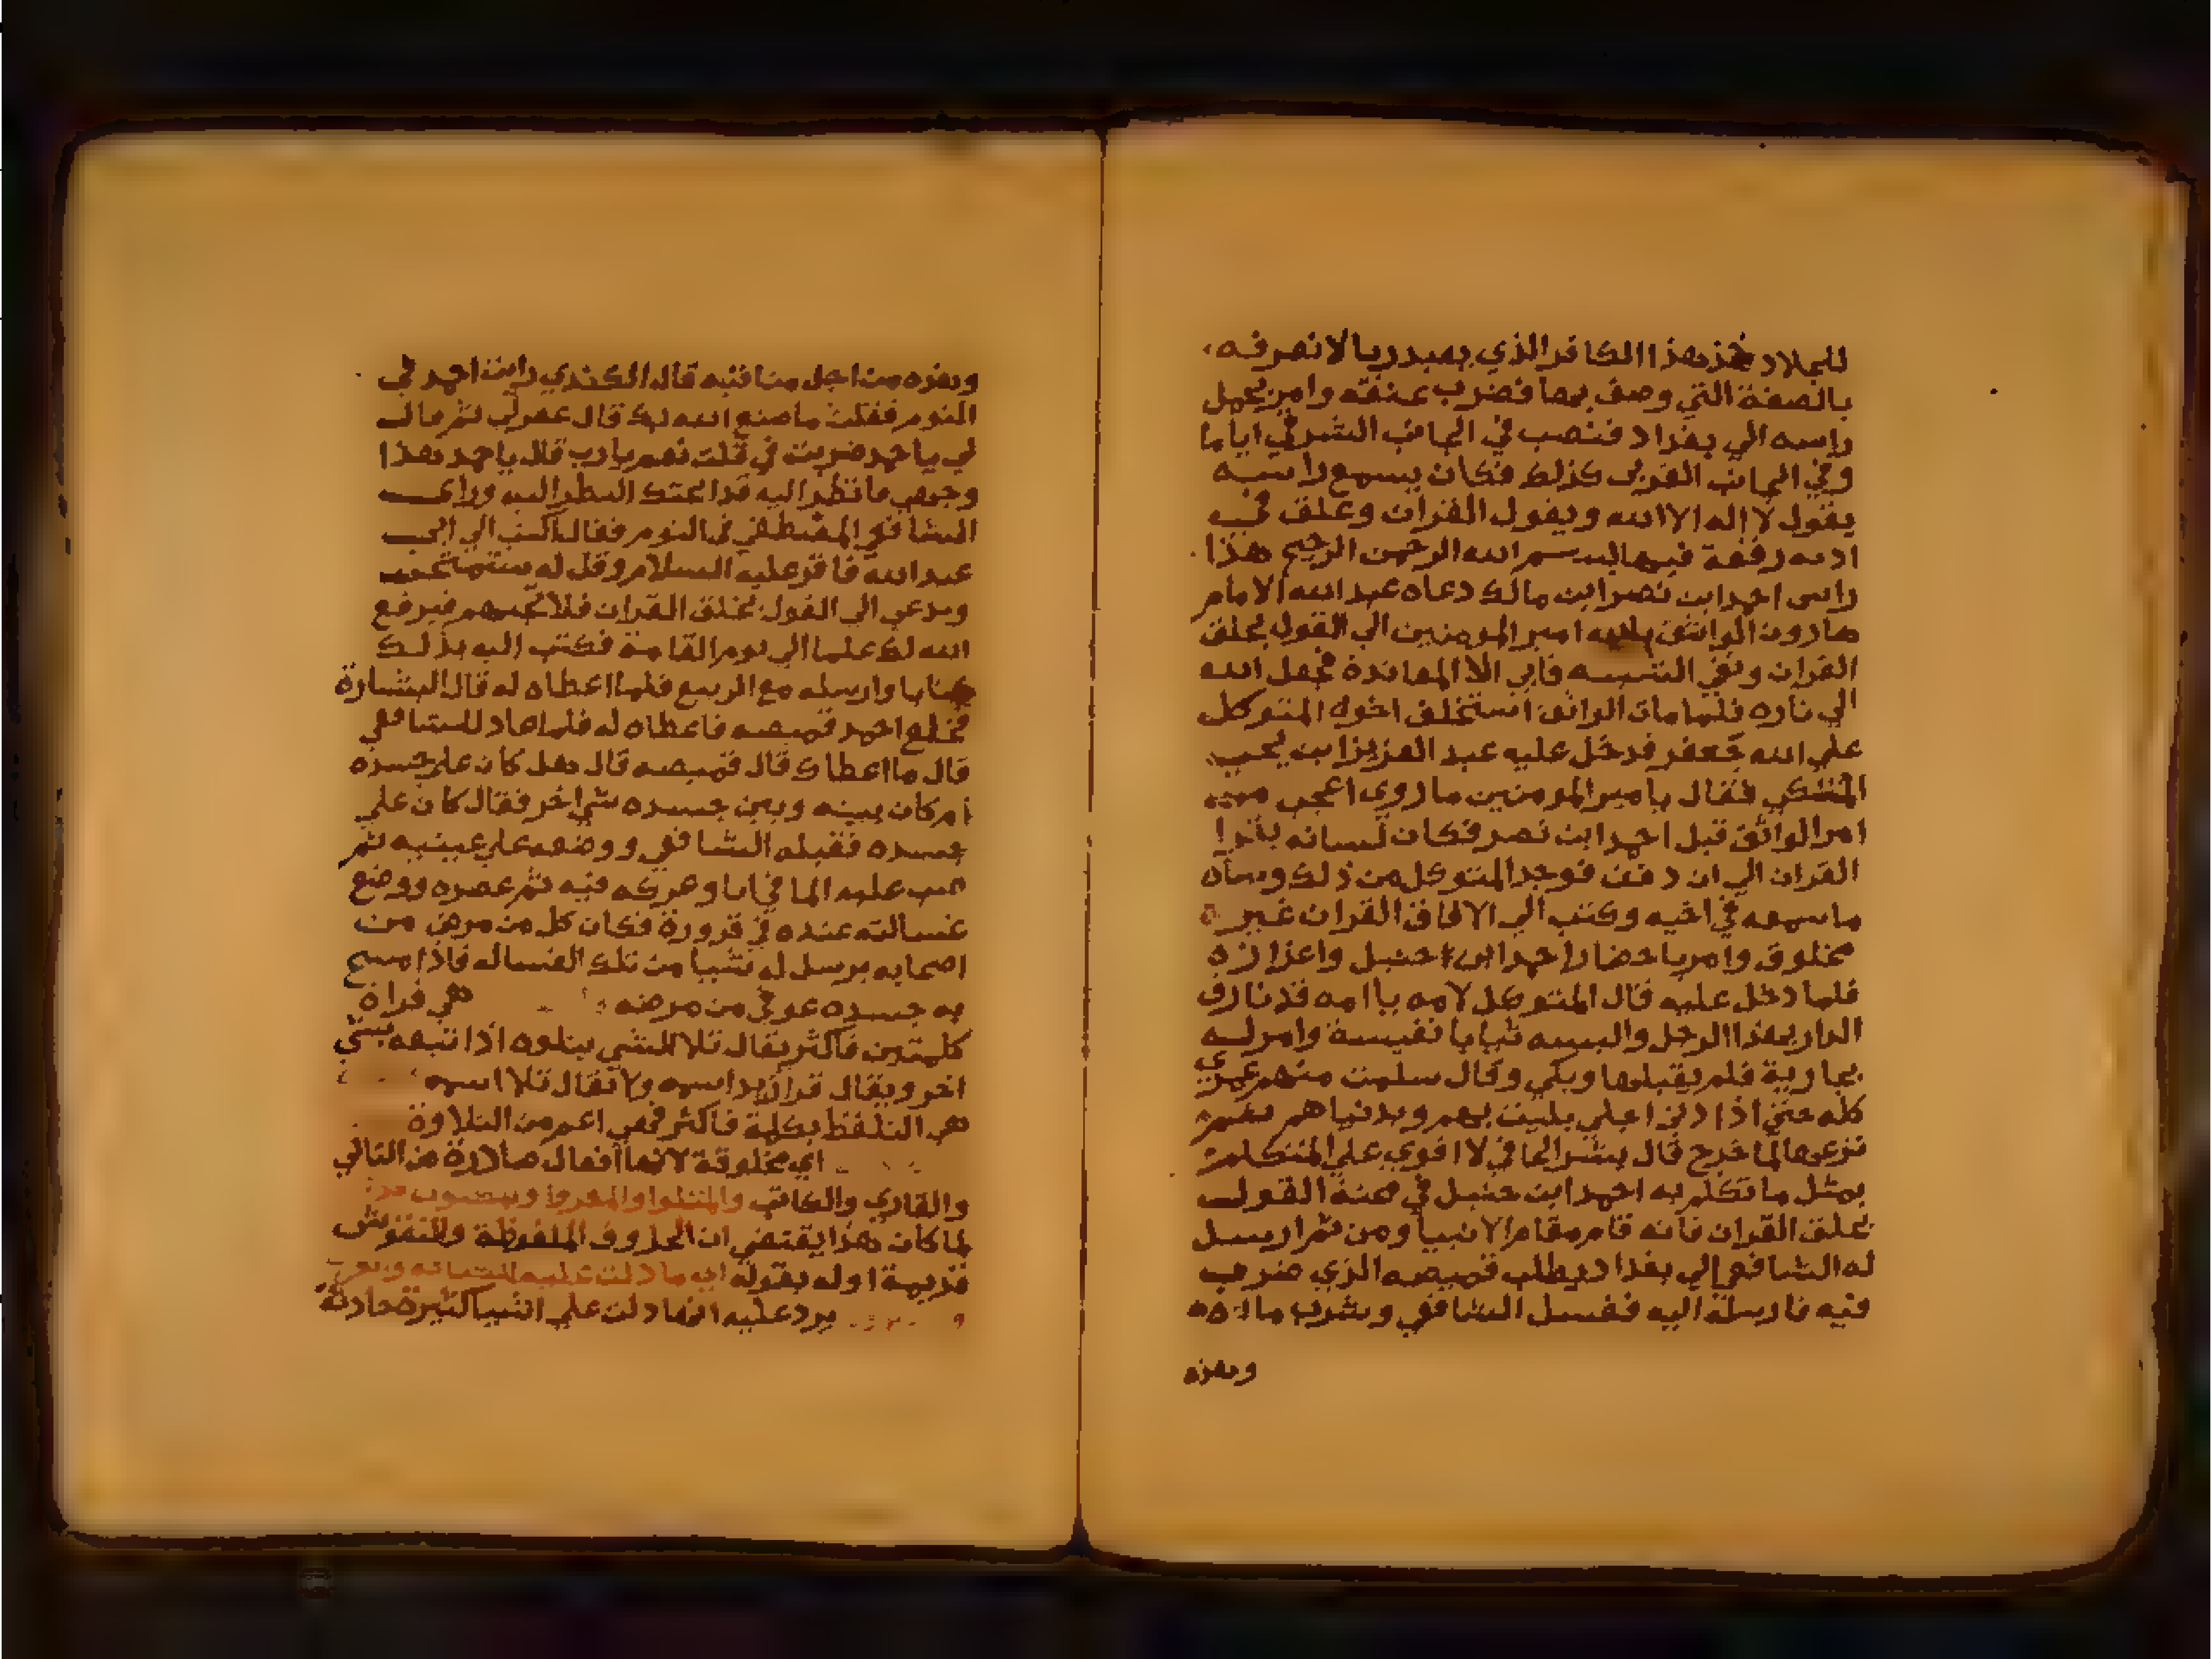 للجلاد خذ هذا الكافر الذي يعبد ربا لا نعرفه
بالصفة التي وصف بها فضرب عنقه وامر بحمل
راسه الي بغداد فنصب في الجانب الشرقي اياما
وفي الجانب الغربى كذلك فكان يسمع راسه
يقول لا اله الا الله ويقول القران وعلق في
اذنه رقعة فيها بسم الله الرحمن الرحيم هذا
راس احمد ابن نصر ابن مالك دعاه عبد الله الامام
هارون الواثق بالله امير المومنين الي القول بخلق
القران ونفي التشبيه فابي الا المعاندة فجعل الله
الي ناره فلما مات الواثق استخلف اخوه المتوكل
علي الله جعفر فدخل عليه عبد العزيز ابن يحيي
فقال يا امير المومنين ما روي اعجب من
امر الواثق قبل احمد ابن نصر فكان لسانه يقرا
القران الي ان دفن فوجد المتوكل من ذلك وساه
ما سمعه في اخيه وكتب الي الافاق القران غير
مخلوق وامر باحضار احمد ابن حنبل واعزازه
فلما دخل عليه قال المتوكل لامه يا امه قد نارت
الدار بهذا الرجل والبسه ثيابا نفيسة وامر له
بجارية فلم يقبلها وبكي وقال سلمت منهم عمري
كله حتي اذا دني اجلي بليت بهم وبدنياهم ثم
نزعها لما خرج قال بشر الحافي لا اقوي علي اتكلم
بمثل ما تكلم به احمد ابن حنبل في محنة القول
بخلق القران فانه قام مقام الانبيا ومن ثم ارسل
له الشافعي الي بغداد يطلب قميصه الذي ضرب
فيه فارسله اليه فغسل الشافعي وشرب ماه
وهذه
وهذه من اجل مناقبه قال الكندي رايت احمد في
النوم فقلت ما صنع الله بك قال غفر لي ثم قال
لي يا احمد ضربت في قلت نعم يارب قال يا احمد هذا
وجهي فانظر اليه قد ابحتك النظر اليه وراي
الشافعي المصطفي في النوم فقال اكتب الي ابي
عبد الله فاقر عليه السلام وقل له ستمتحن
وتدعي الي القول بخلق القران فلا تجبهم فيرفع
الله لك علما الي يوم القيامة فكتب اليه بذلك
كتابا وارسله مع الربيع فلما اعطاه له قال البشارة
فخلع احمد قميصه فاعطاه له فلما عاد للشافعي
قال ما اعطاك قال قميصه قال هل كان علي جسده
ام كان بينه وبين جسده شي اخر فقال كان علي
جسده فقبله الشافعي ووضعه علي عينيه ثم
صب عليه الما في انا وعركه فيه ثم عصره ووضع
غسالته عنده في قرورة فكان كل من مرض من
اصحابه يرسل له شيا من تلك الغساله فاذا مسح
به جسده عوفي من مرضه هي قراة
كلمتين فاكثر يقال تلا الشي يتلوه اذا تبعه بشي
اخر ويقال قرا زيد اسمه ولا يقال تلا اسمه
هي التلفظ بكلمة فاكثر فهي اعم من التلاوة
اي مخلوقة لانها افعال صادرة من التالي
والقاري والكاتب والمتلوا والمقروا
لما كان هذا يقتضي ان الحروف الملفوظة والنقوش
قديمة اوله بقوله اي ما دلت عليه
يرد عليه انها دلت علي اشيا كثيرة حادثة